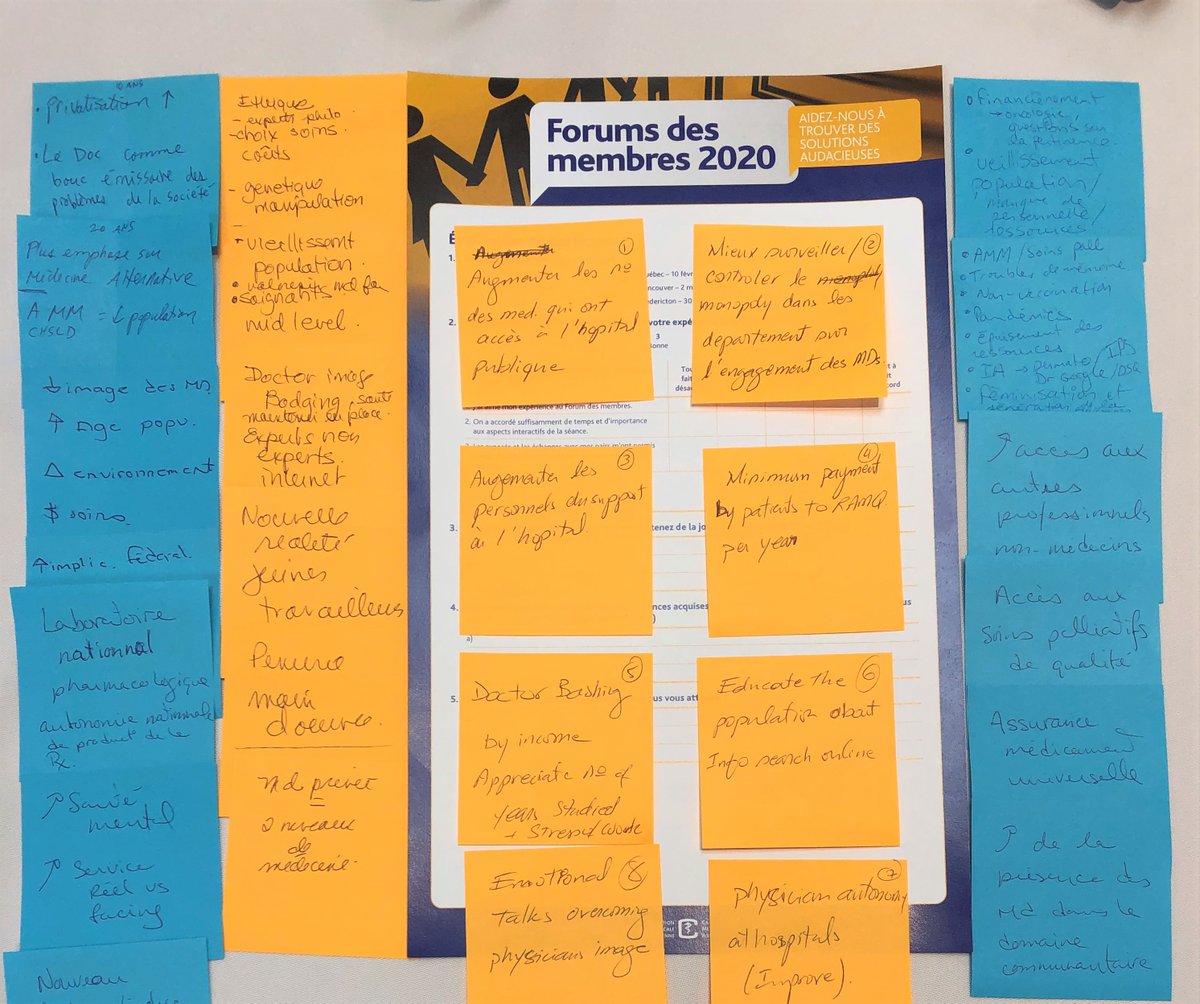 10 ANS
• Privatisation ↑
• Le Doc comme
bouc émissaire des
problèmes de la société
20 ANS
Plus emphase sur
Médecine Alternative
AMM = ↓ population
CHSLD
↓ image des MD
↑ Age popu.
Δ environnement
$ soins
↑ implic. Fédéral.
Laboratoire
nationnal
pharmacologique
autonomie nationnale
de product de la
Rx.
↗ Santé
mental
↗ Service
Réel vs
facing
Nouveau
Ethique
- experts philo
- choix soins.
coûts
- génétique
manipulation
• vieillissant
population.
• soignants
mid level.
Doctor image
Badging.
Experts non
experts.
internet
Nouvelle
réaleté
jeunes
travailleurs
Penurie
main
d'oeuvre.
Md privée
2 niveaux
de
médecine.
Forums des
membres 2020
AIDEZ-NOUS À
TROUVER DES
SOLUTIONS
AUDACIEUSES
1.
uébec – 10 févr
ncouver – 2 m
edericton – 30
2.
votre expé
3
onne
Tou
fait
désac
t
ord
2. On a accordé suffisamment de temps et d'importance
aux aspects interactifs de la séance.
3.
tenez de la jo
4.
nces acquises
ous
a)
5.
us vous att
①
Augmenter les nº
des med. qui ont
accès à l'hopital
publique
②
Mieux surveiller/
controler le
monopoly dans les
departement sur
l'engagement des MDs.
③
Augementer les
personnels du support
à l'hopital.
④
Minimum payment
by patients to RAMQ
per year
⑤
Doctor Bashing
by income
Appreciate nº of
years studied
+ Stress/
⑥
Educate the
population about
Info search online
⑧
Emotional
talks overcoming
physicians image
⑦
physician autonomy
at hospitals
(Improve).
• Financiènement
→ oncologie,
questions sur
la pertinence.
• vieillissement
population/
manque de
personnelle/
ressources.
• AMM/Soins pall
• Troubles de mémoire
• Non-vaccination
• Pandémies
• Épuisement des
ressources
• IA → Dermato/IPS
Dr Google/DSQ
• Féminisation et
↗ accès aux
autres
professionnels
non-médecins
Accès aux
soins palliatifs
de qualité
Assurance
médicament
universelle
↗ de la
présence des
Md dans le
domaine
communautaire